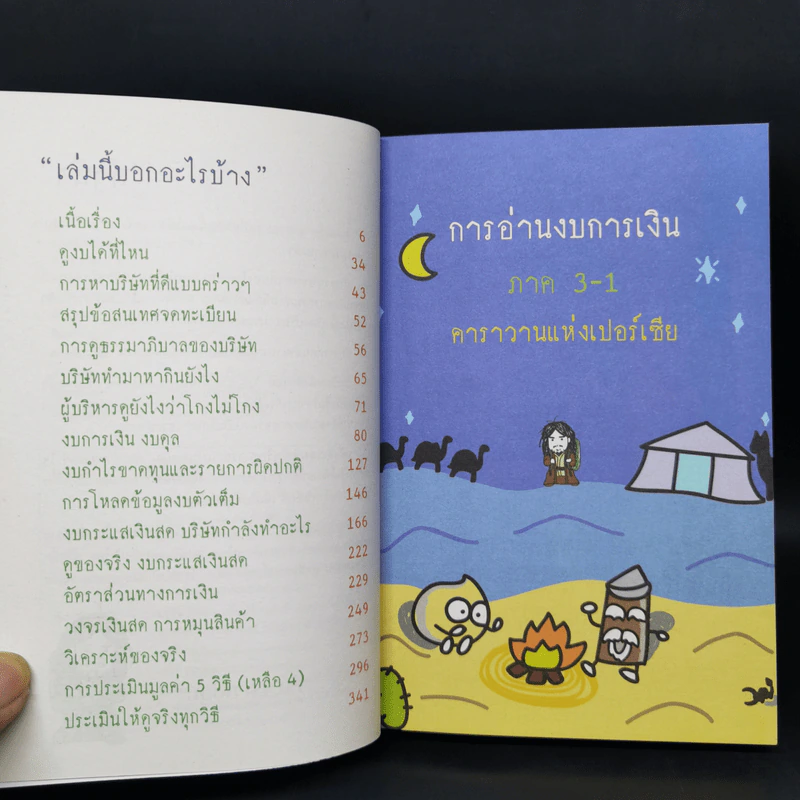 “เล่มนี้บอกอะไรบ้าง”
เนื้อเรื่อง 6
ดูงบได้ที่ไหน 34
การหาบริษัทที่ดีแบบคร่าวๆ 43
สรุปข้อสนเทศจดทะเบียน 52
การดูธรรมาภิบาลของบริษัท 56
บริษัททำมาหากินยังไง 65
ผู้บริหารดูยังไงว่าโกงไม่โกง 71
งบการเงิน งบดุล 80
งบกำไรขาดทุนและรายการผิดปกติ 127
การโหลดข้อมูลงบตัวเต็ม 146
งบกระแสเงินสด บริษัทกำลังทำอะไร 166
ดูของจริง งบกระแสเงินสด 222
อัตราส่วนทางการเงิน 229
วงจรเงินสด การหมุนสินค้า 249
วิเคราะห์ของจริง 273
การประเมินมูลค่า 5 วิธี (เหลือ 4) 296
ประเมินให้ดูจริงทุกวิธี 341
การอ่านงบการเงิน
ภาค 3-1
คาราวานแห่งเปอร์เซีย